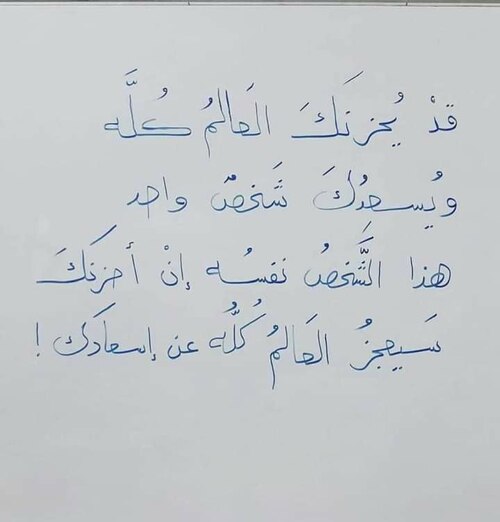 قدْ يُحزنَكَ العَالمُ كُلَّه
ويُسعدُكَ شَخصٌ واحد
هذا الشَّخصُ نفسُه إنْ أحزنَكَ
سَيعجزُ العَالمُ كُلُّه عن إسعادَك !